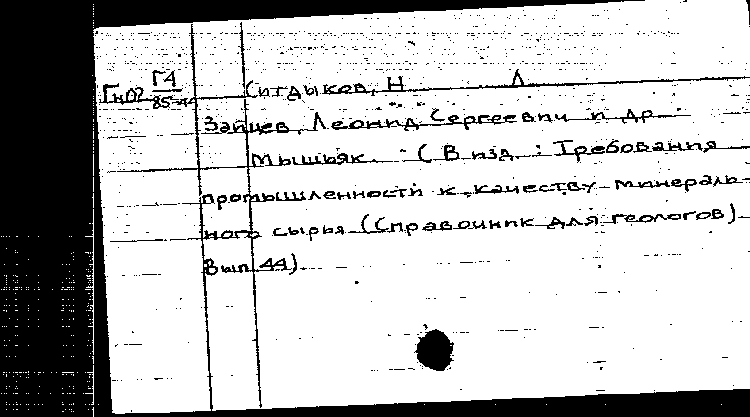 Г4
85-44
Ситдыков, Н Л
Зайцев, Леонид Сергеевич и др
Мышьяк. - (В изд. : Требования
промышленности к качеству минераль-
ного сырья (Справочник для геологов)
Вып. 44).